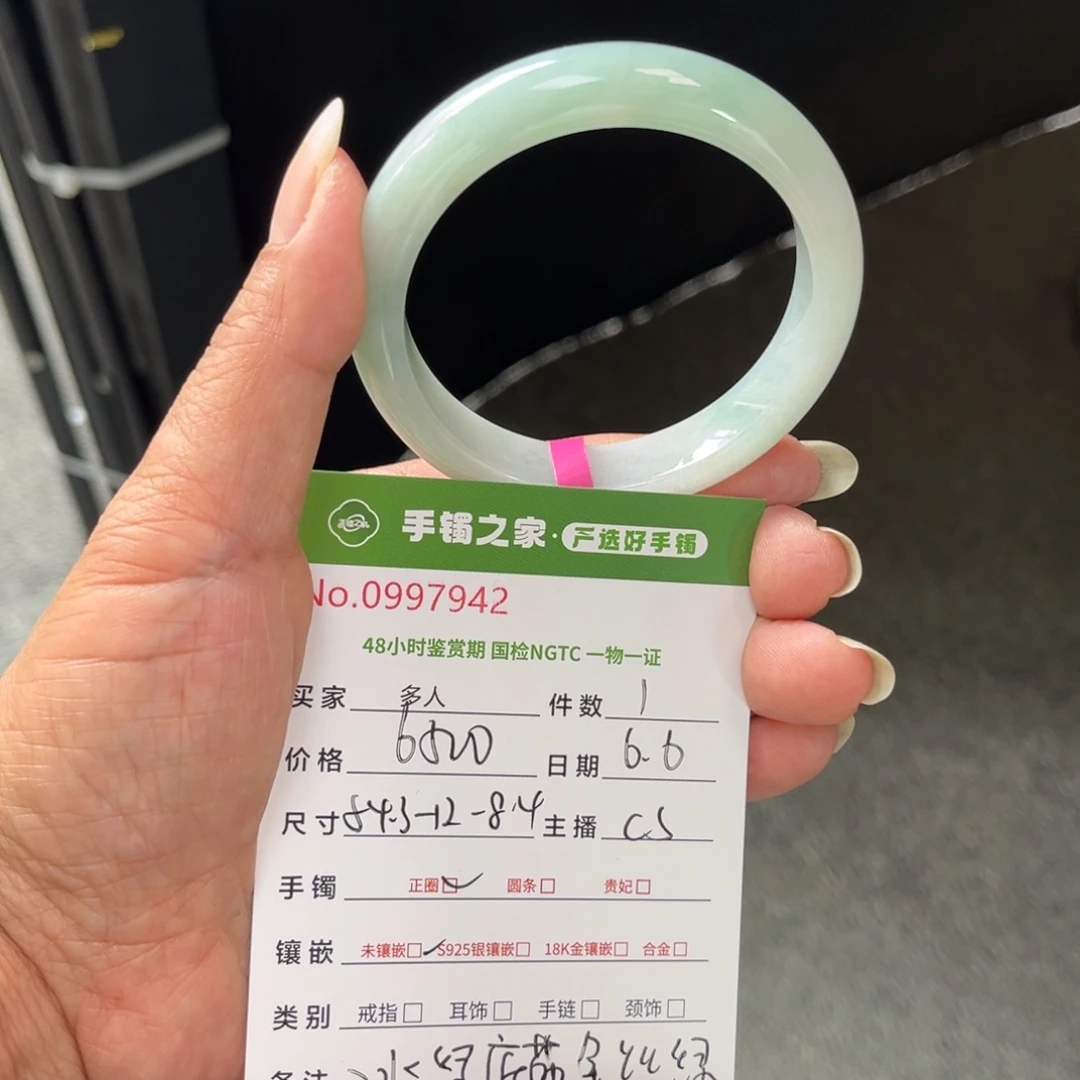 手镯之家·严选好手镯
No.0997942
48小时鉴赏期 国检NGTC 一物一证
买家 多人 件数 1
价格 6500 日期 6.6
尺寸 54.3-12-8.4 主播 CS
手镯 正圈☑ 圆条□ 贵妃□
镶嵌 未镶嵌☑ S925银镶嵌□ 18K金镶嵌□ 合金□
类别 戒指□ 耳饰□ 手链□ 颈饰□
备注